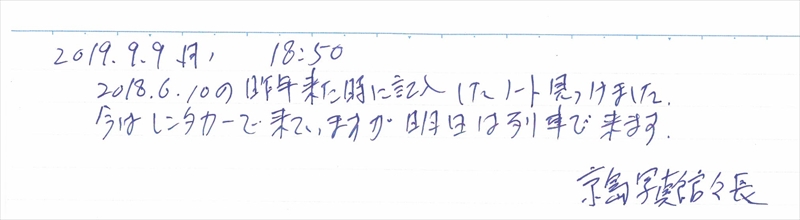 2019.9.9 月, 18:50
2018.6.10の昨年来た時に記入したノート見つけました.
今はレンタカーで来ていますが明日は列車で来ます.
京島写真館々長